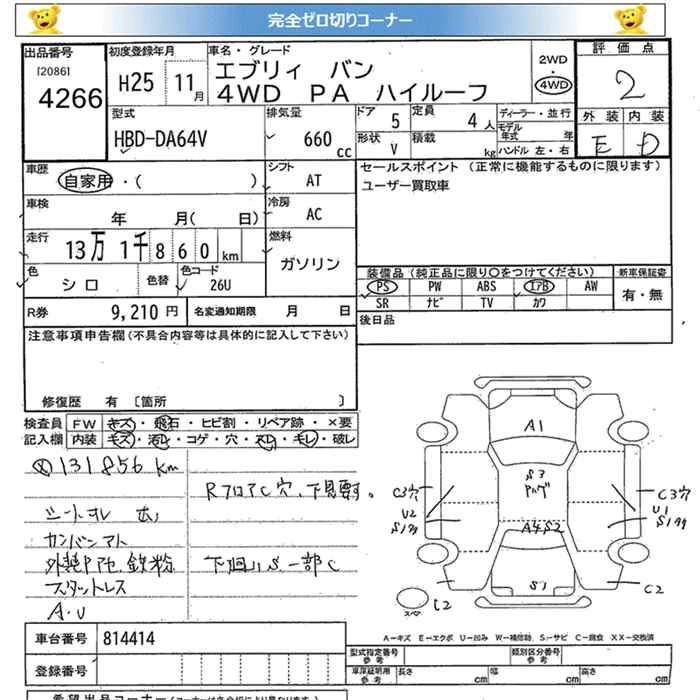 完全ゼロ切りコーナー
出品番号
[2086]
4266
初度登録年月
H25 11月
車名・グレード
エブリィ バン
4WD PA ハイルーフ
2WD
4WD
評価点
2
外装 内装
E D
型式
HBD-DA64V
排気量
660 cc
ドア 5
定員 4人
形状 V
積載 kg
ディーラー・並行
モデル年式 年
ハンドル 左・右
車歴
自家用・( )
シフト
AT
セールスポイント (正常に機能するものに限ります)
ユーザー買取車
車検
年 月( 日)
冷房
AC
走行
13万 1千 860 km
燃料
ガソリン
色
シロ
色替
色コード
26U
装備品(純正品に限り○をつけてください)
新車保証書
PS PW ABS エアB AW
SR ナビ TV カワ
有・無
R券 9,210円
名変通知期限 月 日
後日品
注意事項申告欄(不具合内容等は具体的に記入して下さい)
修復歴 有 〔箇所 〕
検査員記入欄
FW キズ・飛石・ヒビ割・リペア跡・×要
内装 キズ・汚レ・コゲ・穴・スレ・キレ・破レ
131856 km
RフロアC穴、下見要す。
シートヨレ
カンバンアト
鉄粉
下廻りS、一部C
スタットレス
A・U
A1
S3
C3穴
U2
A4S2
C3穴
U1
S1
C2
C2
スペア
車台番号 814414
登録番号
A−キズ E−エクボ U−凹み W−補修跡 S−サビ C−腐食 XX−交換済
型式指定番号
参考
類別区分番号
参考
車庫証明用
参考
長さ cm
幅 cm
高さ cm
希望出品コーナー